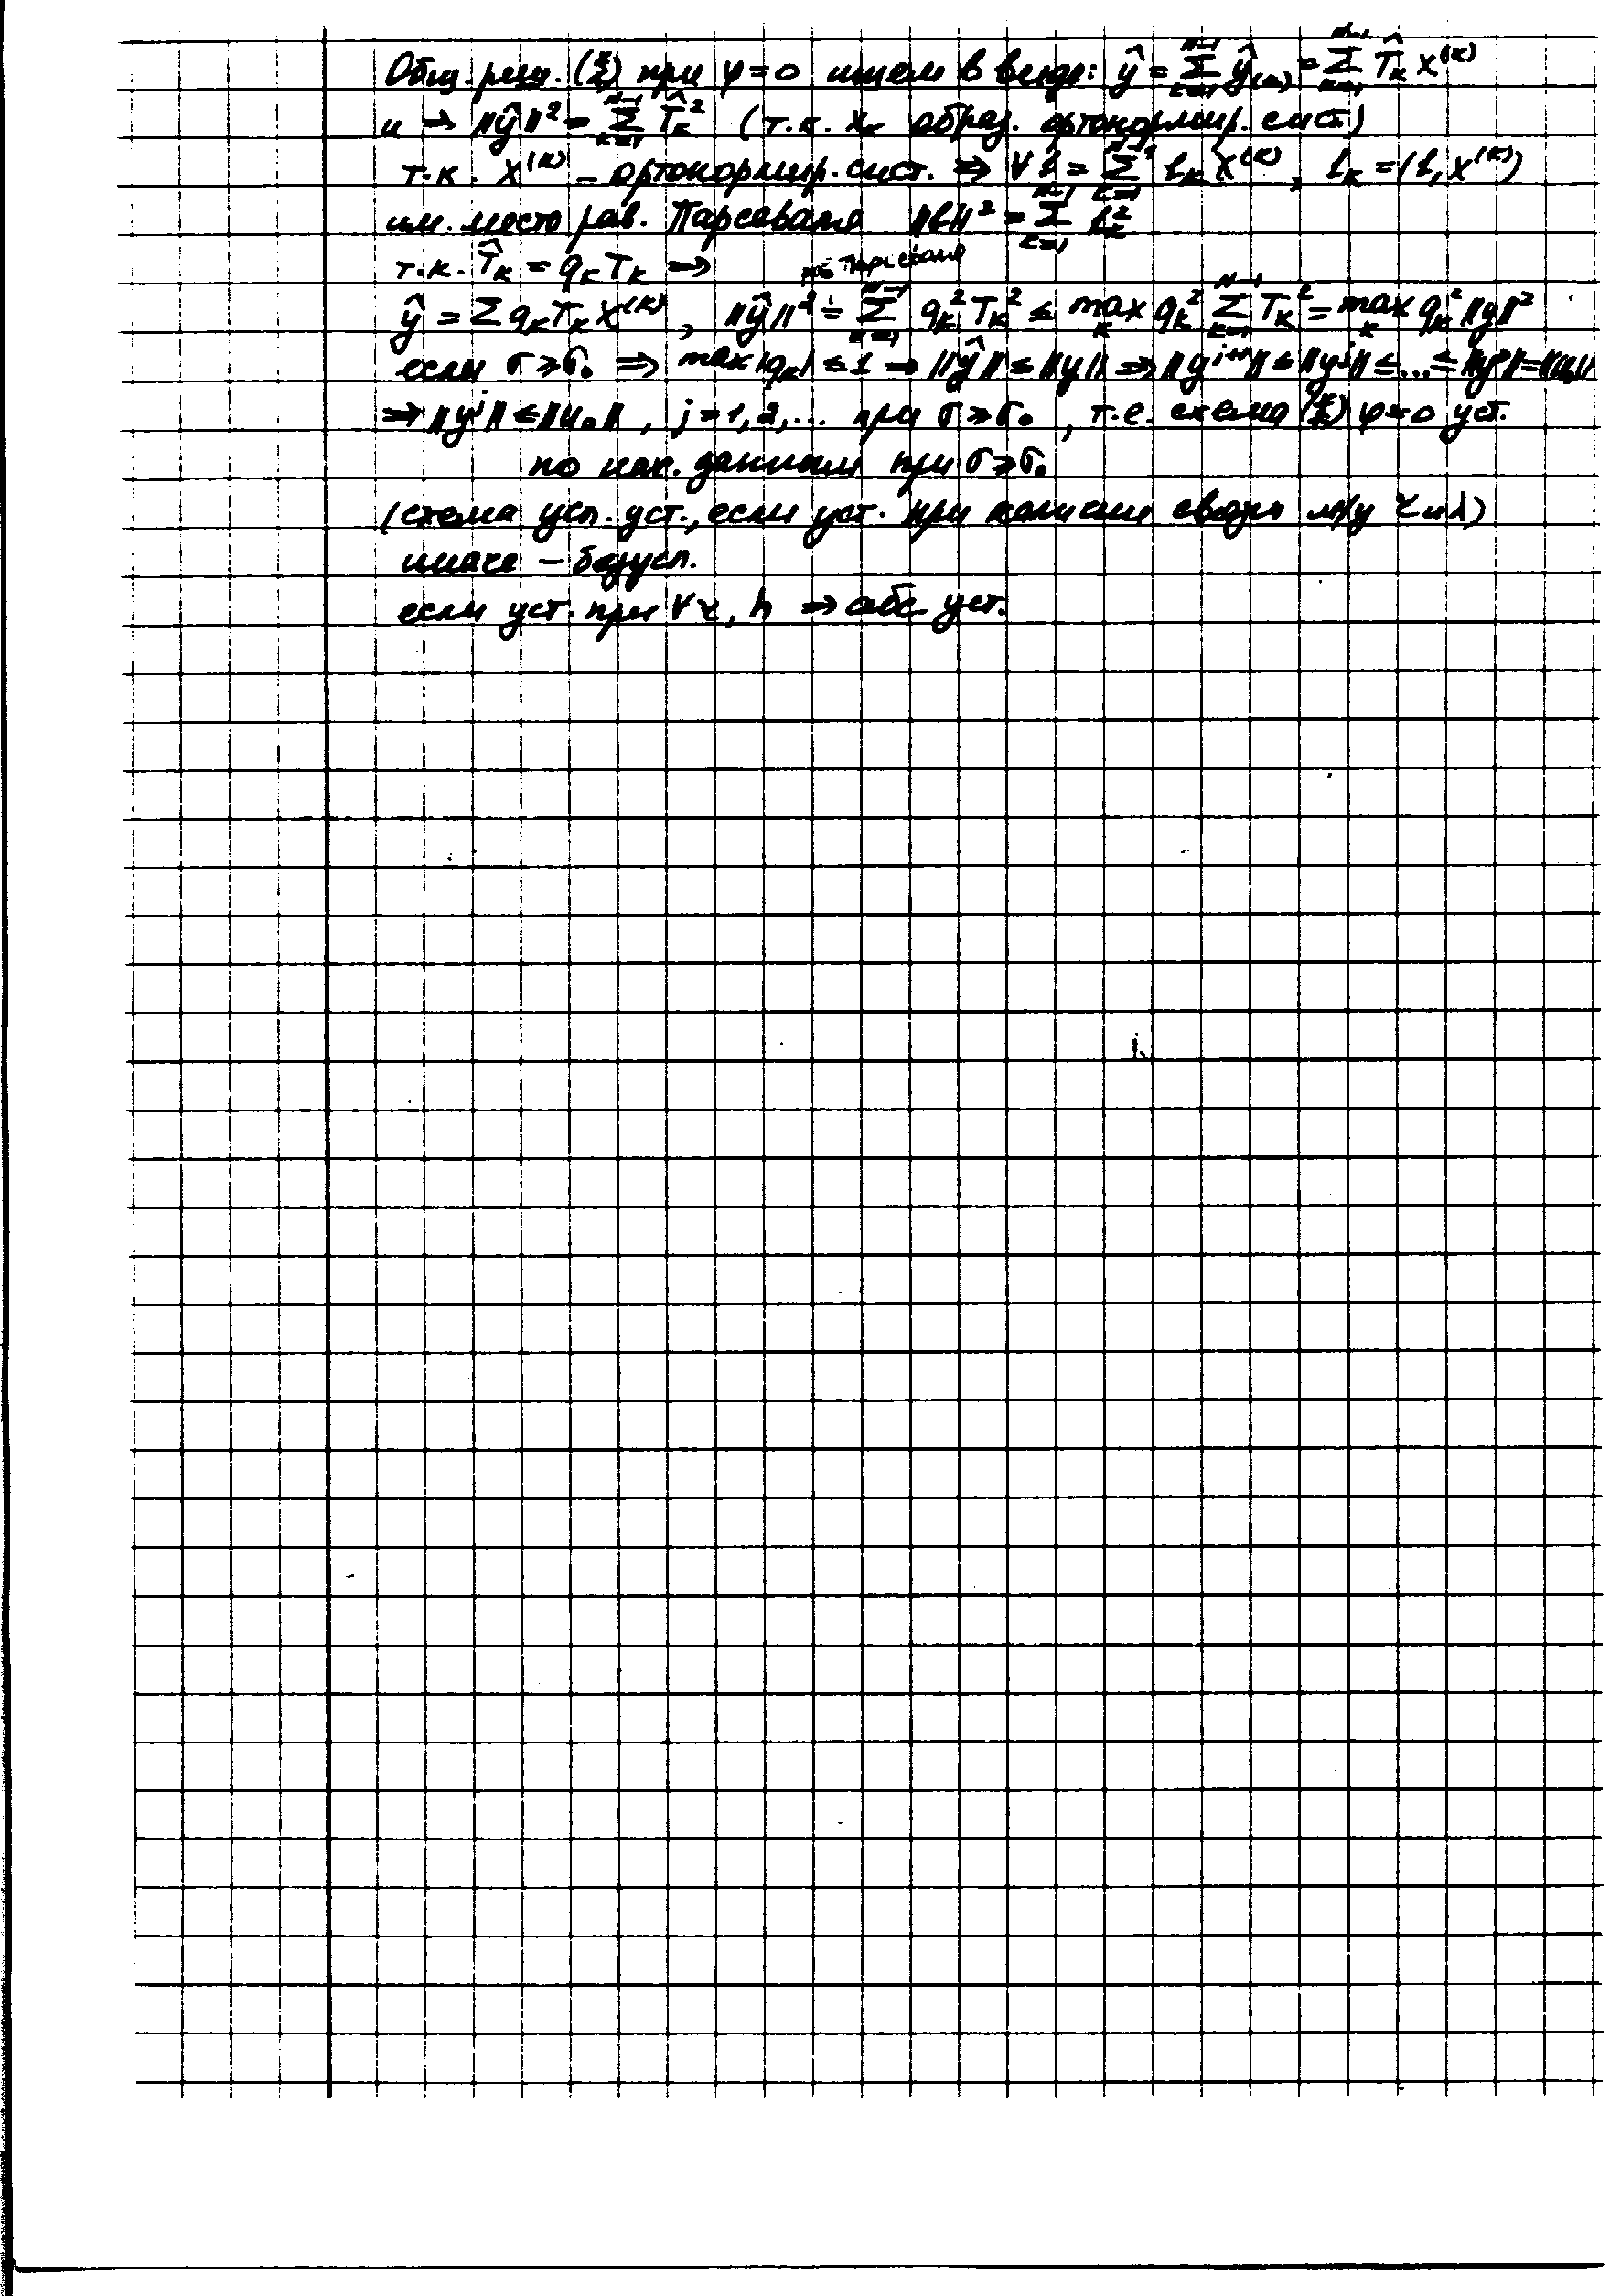 Общ. реш. (*) при φ=0 ищем в виде: ŷ = Σ_{k=1}^{N-1} ŷ_(k) = Σ_{k=1}^{N-1} T̂_k X^(k)
и ⇒ ‖ŷ‖² = Σ_{k=1}^{N-1} T̂_k² (т.к. X_k образ. ортонормир. сист.)
т.к. X^(k) – ортонормир. сист. ⇒ ∀ f = Σ_{k=1}^{N-1} f_k X^(k), f_k = (f, X^(k))
им. место рав. Парсеваля ‖f‖² = Σ_{k=1}^{N-1} f_k²
т.к. T̂_k = q_k T_k ⇒
рав. Парсеваля
ŷ = Σ q_k T_k X^(k), ‖ŷ‖² = Σ_{k=1}^{N-1} q_k² T_k² ≤ max_k q_k² Σ_{k=1}^{N-1} T_k² = max_k q_k² ‖y‖²
если σ ≥ σ₀ ⇒ max|q_k| ≤ 1 ⇒ ‖ŷ‖ ≤ ‖y‖ ⇒ ‖y^{j+1}‖ ≤ ‖y^j‖ ≤ ... ≤ ‖y⁰‖ = ‖u₀‖
⇒ ‖y^j‖ ≤ ‖u₀‖, j = 1,2,... при σ ≥ σ₀, т.е. схема (*) φ=0 уст.
по нач. данным при σ ≥ σ₀
(схема усл. уст., если уст. при наличии связи м/у τ и h)
иначе – безусл.
если уст. при ∀ τ, h ⇒ абс. уст.